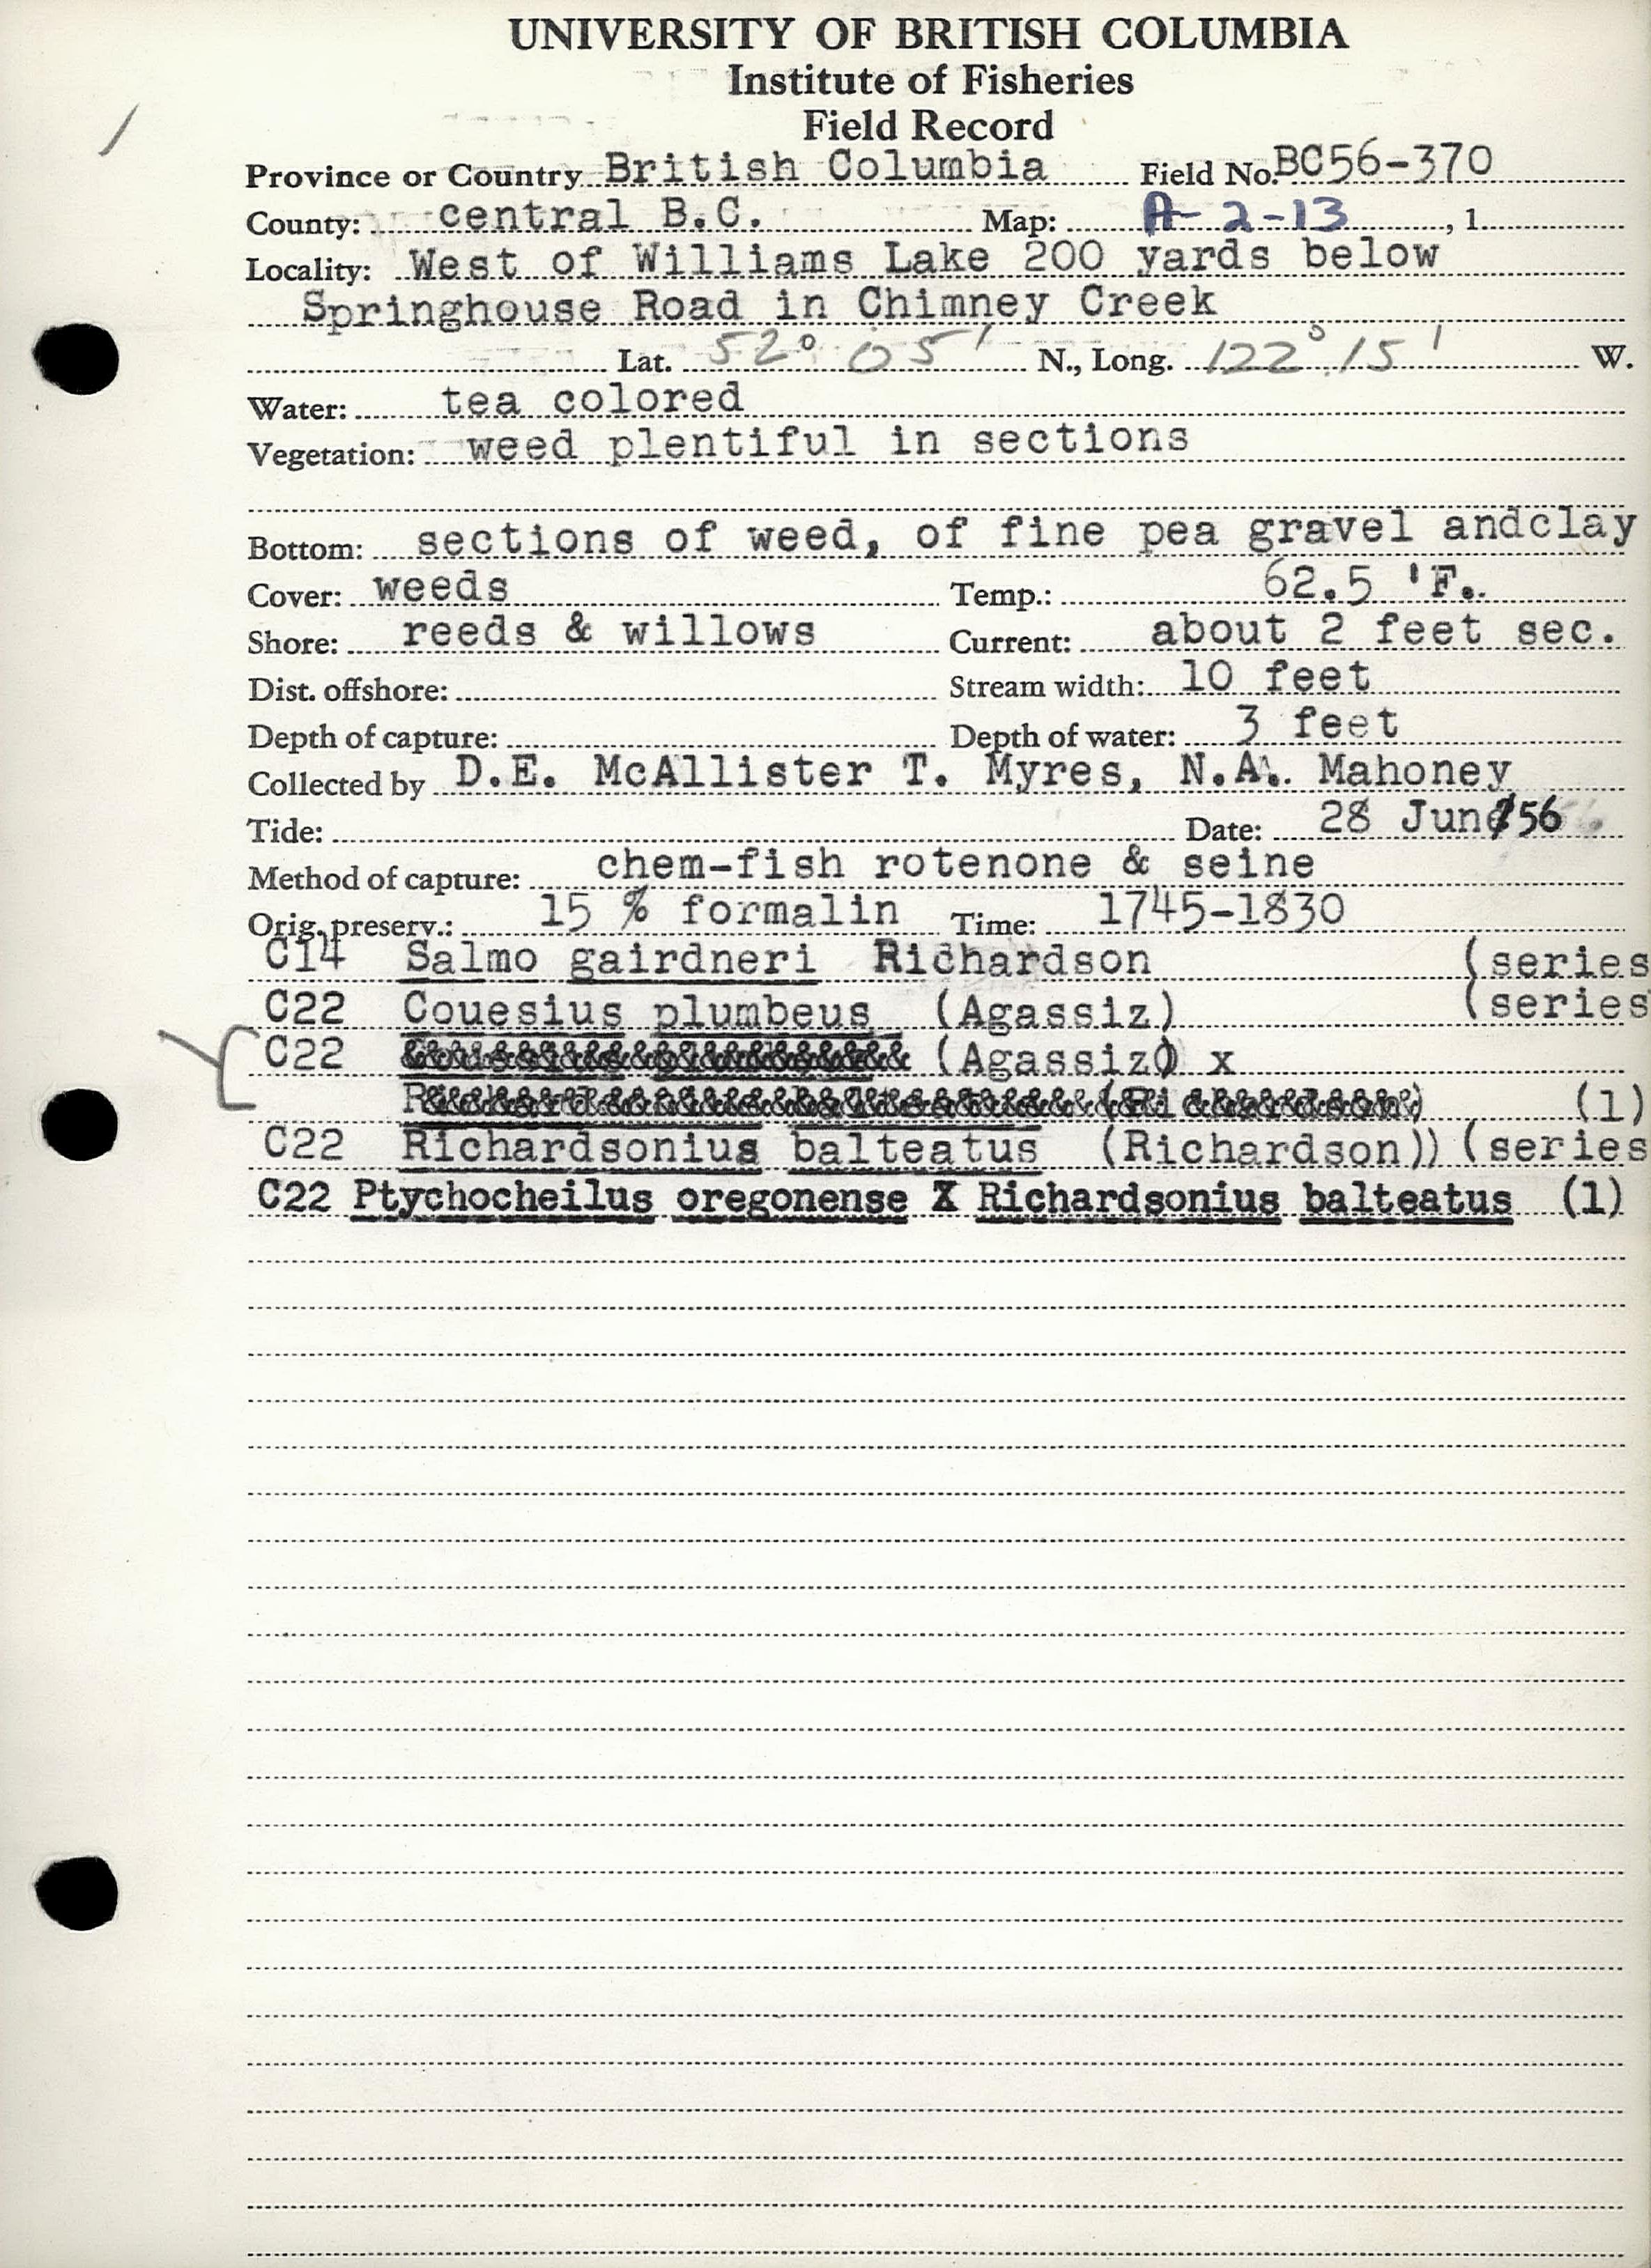 UNIVERSITY OF BRITISH COLUMBIA
Institute of Fisheries
Field Record
Province or Country British Columbia Field No. BC56-370
County: central B.C. Map: A-2-13, 1
Locality: West of Williams Lake 200 yards below
Springhouse Road in Chimney Creek
Lat. 52° 05' N., Long. 122° 15' W.
Water: tea colored
Vegetation: weed plentiful in sections
Bottom: sections of weed, of fine pea gravel andclay
Cover: weeds Temp.: 62.5 'F.
Shore: reeds & willows Current: about 2 feet sec.
Dist. offshore: Stream width: 10 feet
Depth of capture: Depth of water: 3 feet
Collected by D.E. McAllister T. Myres, N.A. Mahoney
Tide: Date: 28 June/56
Method of capture: chem-fish rotenone & seine
Orig. preserv.: 15 % formalin Time: 1745-1830
C14 Salmo gairdneri Richardson (series
C22 Couesius plumbeus (Agassiz) (series
C22 (Agassiz) x
(1)
C22 Richardsonius balteatus (Richardson)) (series
C22 Ptychocheilus oregonense X Richardsonius balteatus (1)